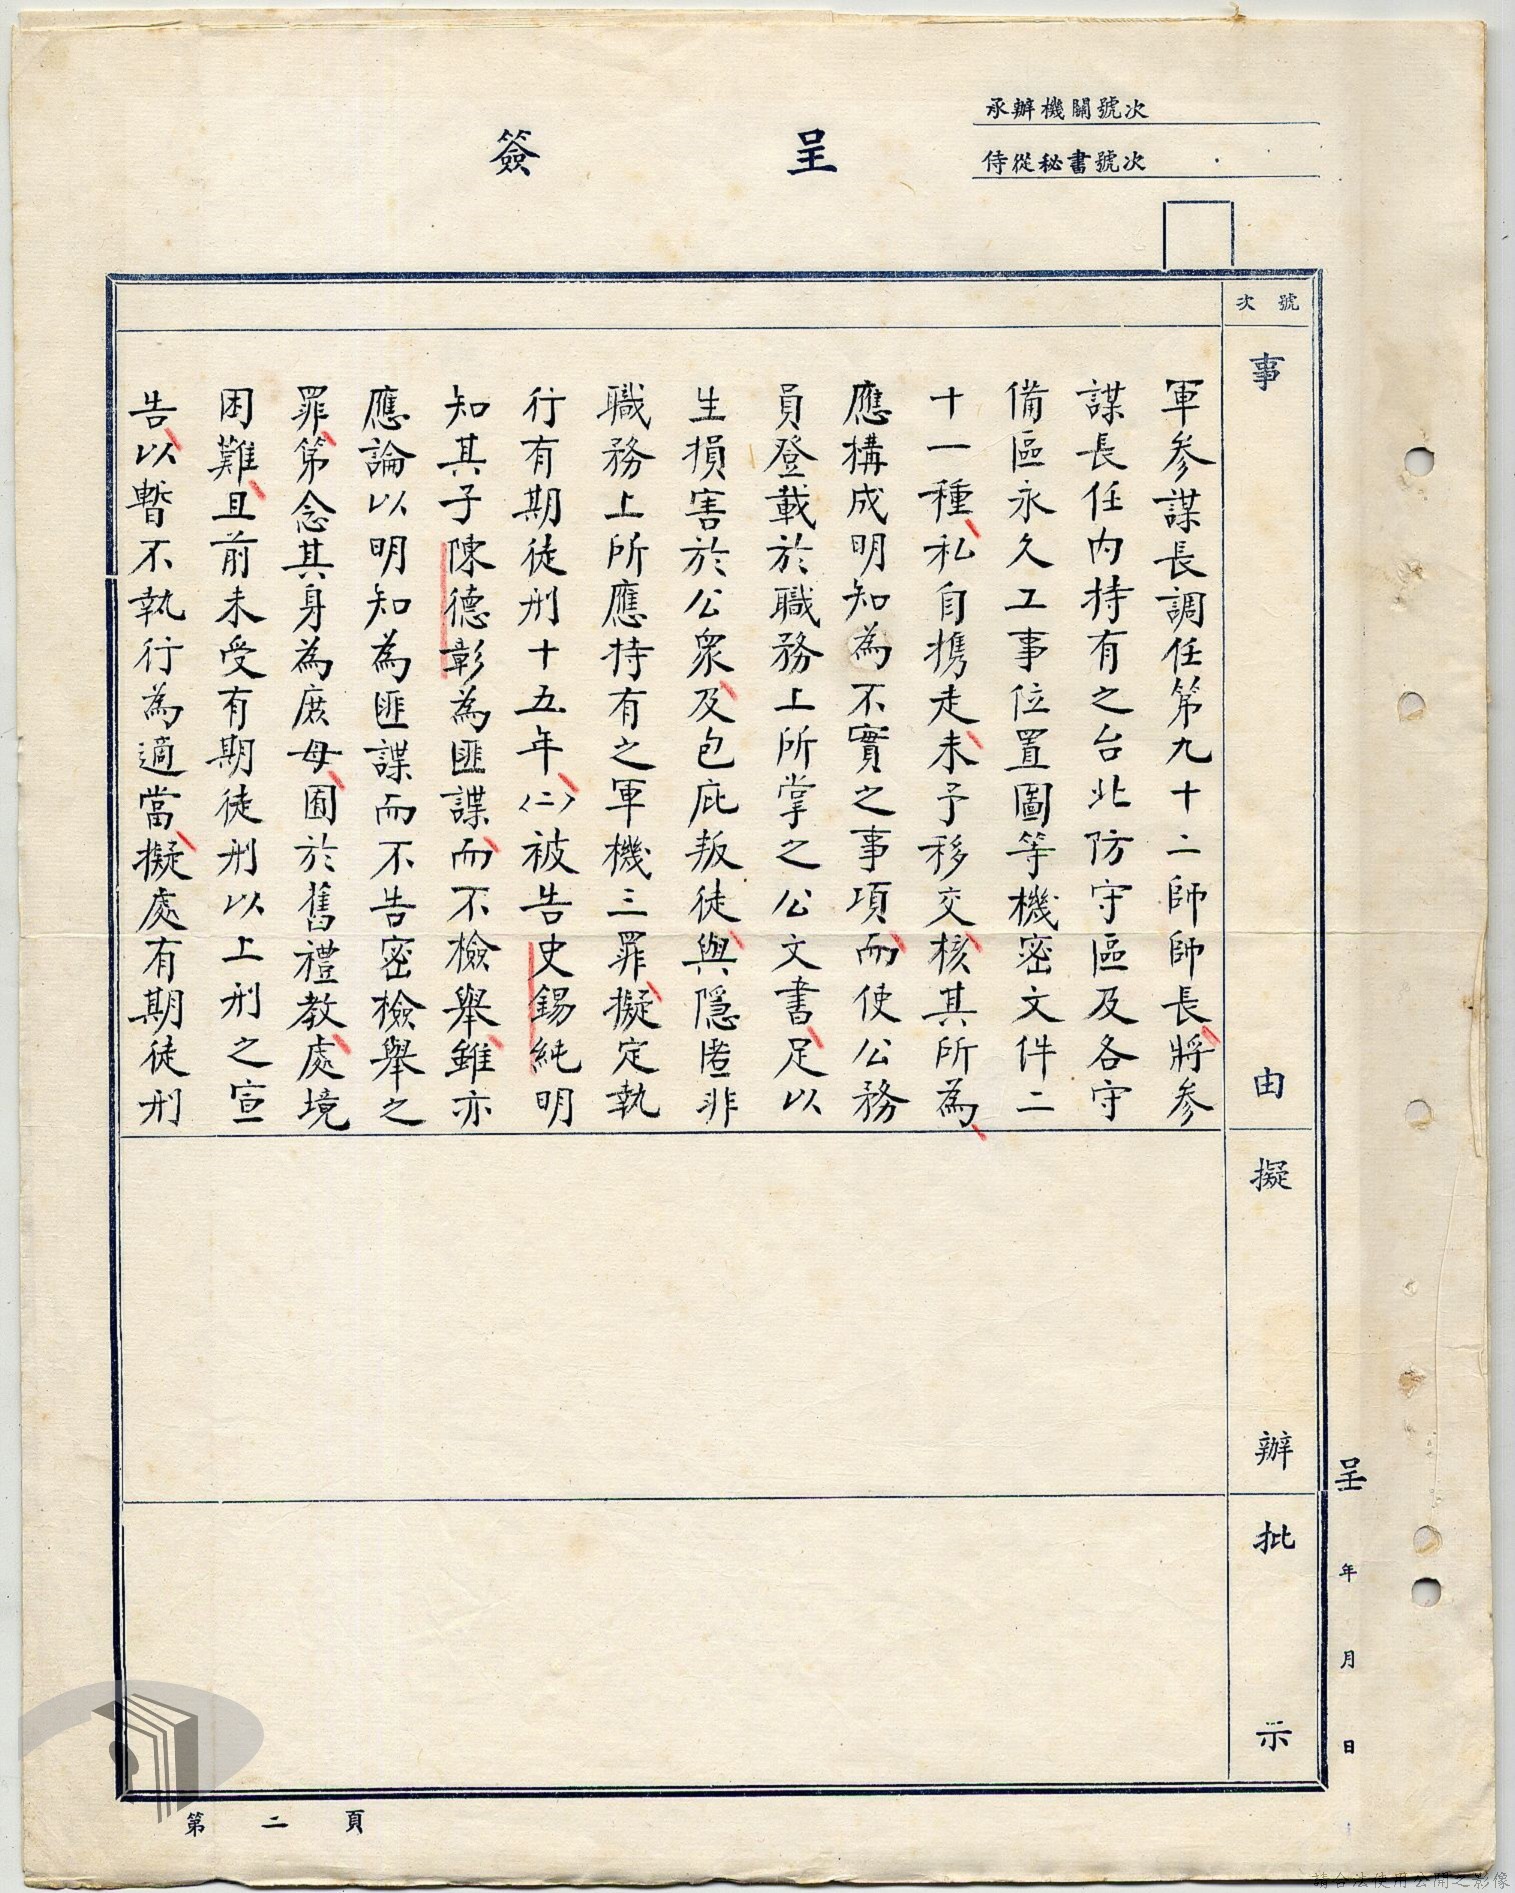 承辦機關號次
侍從秘書號次
呈簽
號次
事由
擬辦
批示
軍參謀長調任第九十二師師長將參
謀長任內持有之台北防守區及各守
備區永久工事位置圖等機密文件二
十一種私自携走未予移交核其所為
應構成明知為不實之事項而使公務
員登載於職務上所掌之公文書足以
生損害於公眾及包庇叛徒與隱匿非
職務上所應持有之軍機三罪擬定執
行有期徒刑十五年〈二〉被告史錫純明
知其子陳德彰為匪諜而不檢舉雖亦
應論以明知為匪諜而不告密檢舉之
罪第念其身為庶母囿於舊禮教處境
困難且前未受有期徒刑以上刑之宣
告以暫不執行為適當擬處有期徒刑
呈 年 月 日
第二頁
請合法使用公開之影像